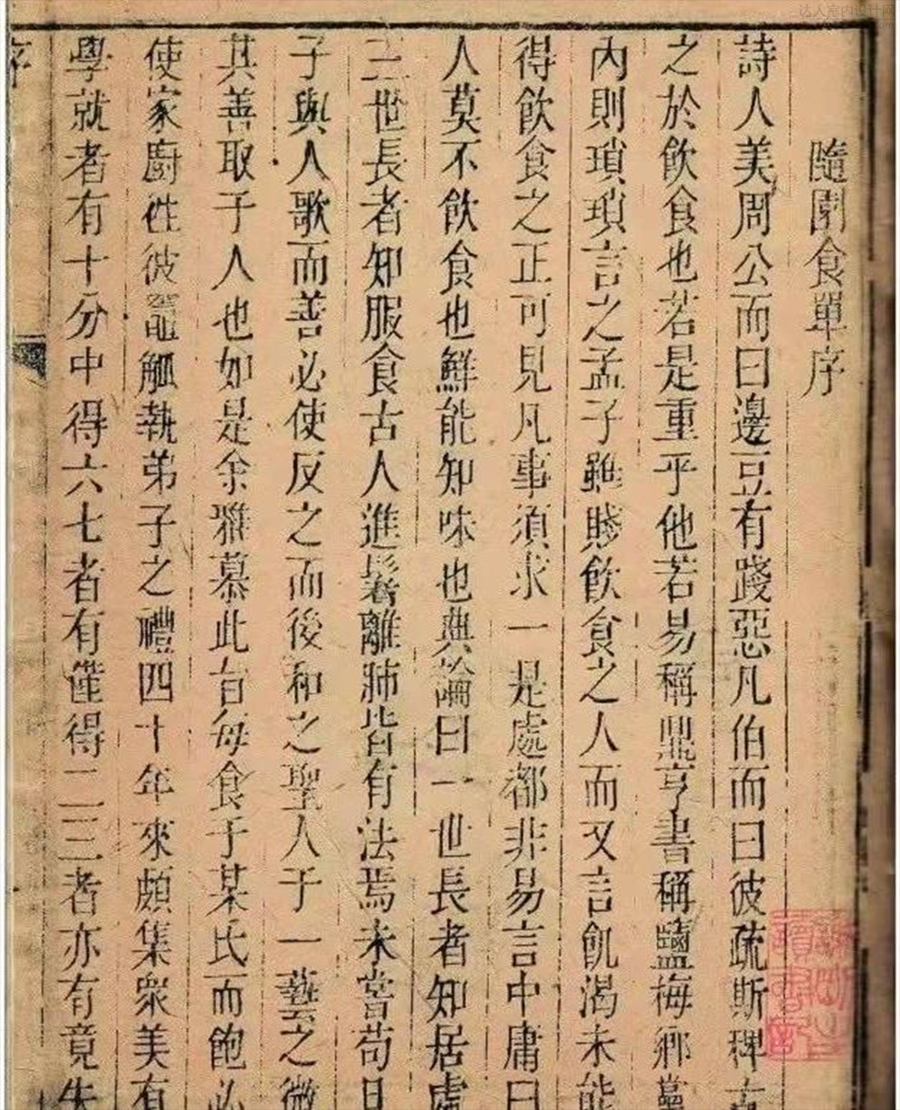 达人室内设计网
隨園食單序
詩人美周公而曰邊豆有踐惡凡伯而曰彼疏斯稗古
之於飲食也若是重乎他若易稱鼎亨書稱鹽梅鄉黨
內則瑣瑣言之孟子雖賤飲食之人而又言飢渴未能
得飲食之正可見凡事須求一是處都非易言中庸曰
人莫不飲食也鮮能知味也典論曰一世長者知居處
三世長者知服食古人進鬐離肺皆有法焉未嘗苟且
子與人歌而善必使反之而後和之聖人于一藝之微
其善取于人也如是余雅慕此旨每食于某氏而飽必
使家廚往彼竈觚執弟子之禮四十年來頗集衆美有
學就者有十分中得六七者有僅得二三者亦有竟失